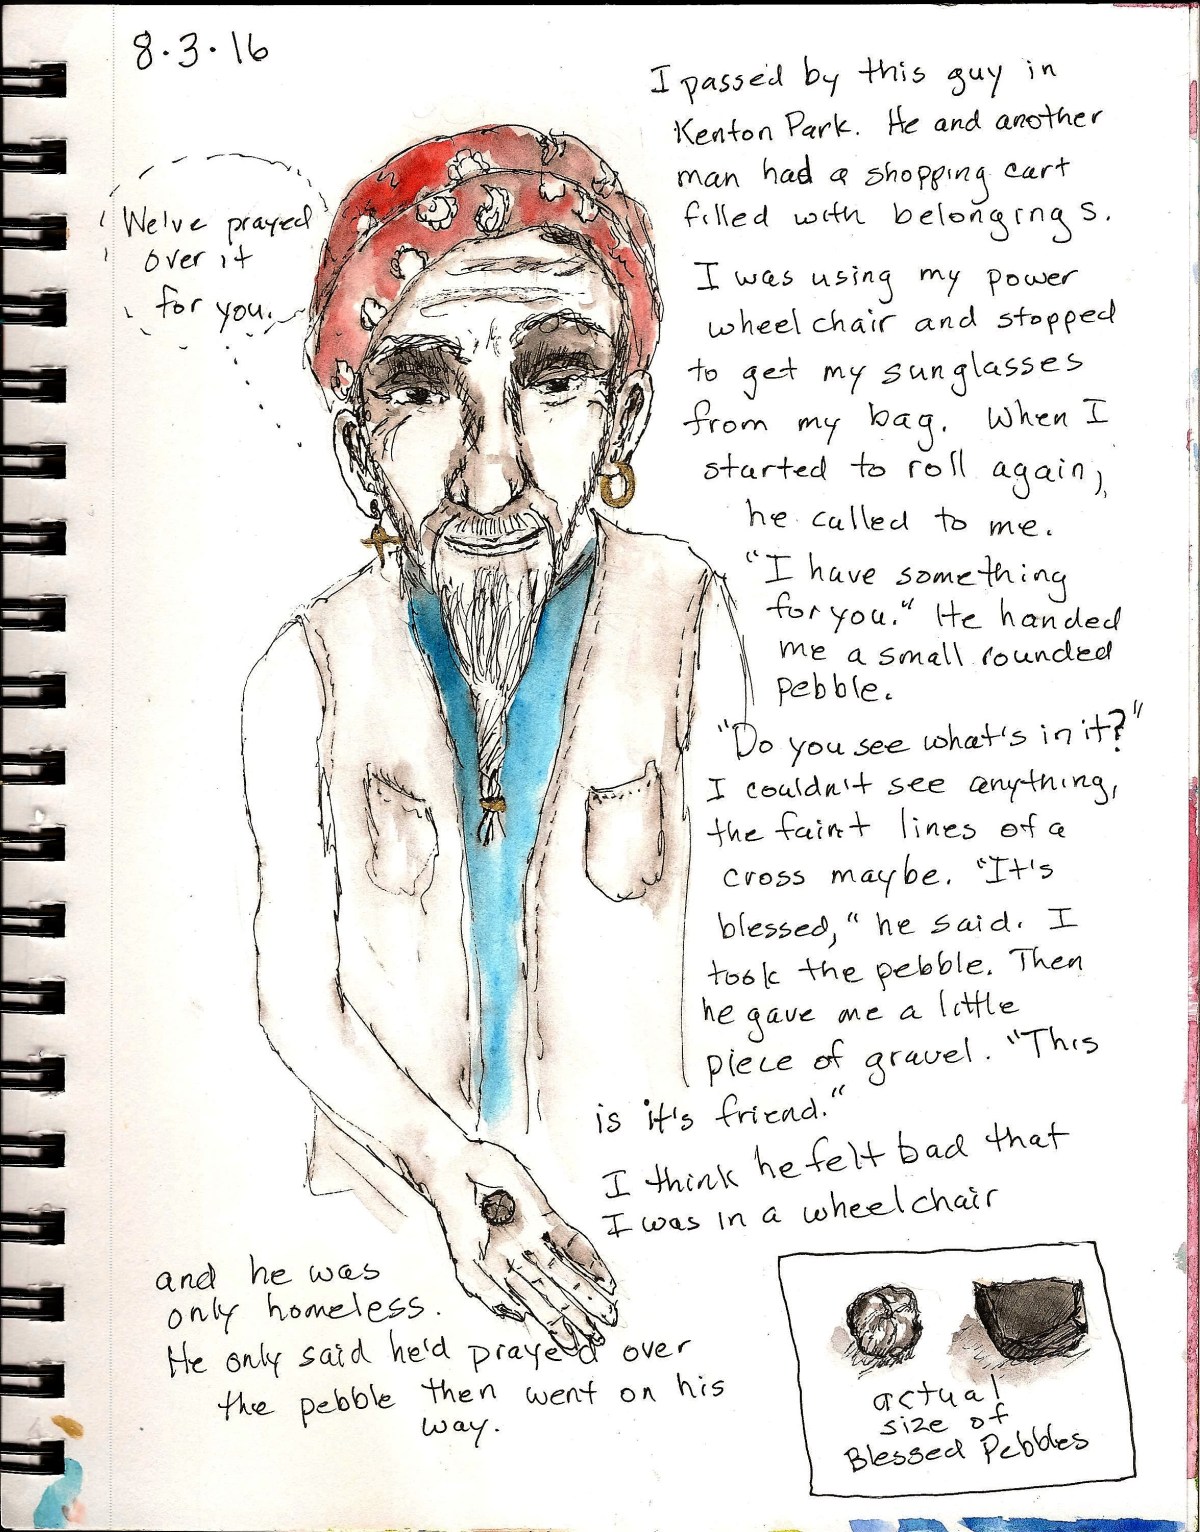 8.3.16
We've prayed
over it
for you.
I passed by this guy in
Kenton Park. He and another
man had a shopping cart
filled with belongings.
I was using my power
wheelchair and stopped
to get my sunglasses
from my bag. When I
started to roll again,
he called to me.
"I have something
for you." He handed
me a small rounded
pebble.
"Do you see what's in it?"
I couldn't see anything,
the faint lines of a
cross maybe. "It's
blessed," he said. I
took the pebble. Then
he gave me a little
piece of gravel. "This
is it's friend."
I think he felt bad that
I was in a wheelchair
and he was
only homeless.
He only said he'd prayed over
the pebble then went on his
way.
actual
size of
Blessed Pebbles